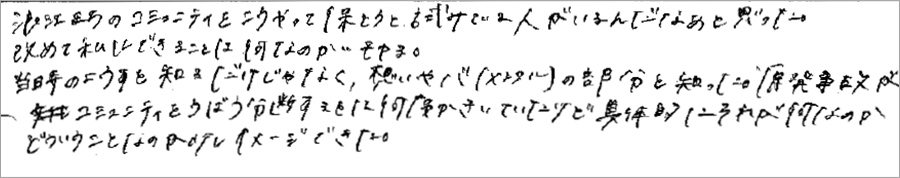 浪江町のコミュニティをこうやって保とうと試みている人がいるんだなあと思った。
改めて私にできることは何なのかいをやる。
当時のこうすを知るだけじゃなく、想いや心(メンタル)の部分を知った。原発事故が
コミュニティをうばう分断するとは何度かきいていたけど具体的にそれが何なのか
どういうことなのか少しイメージできた。